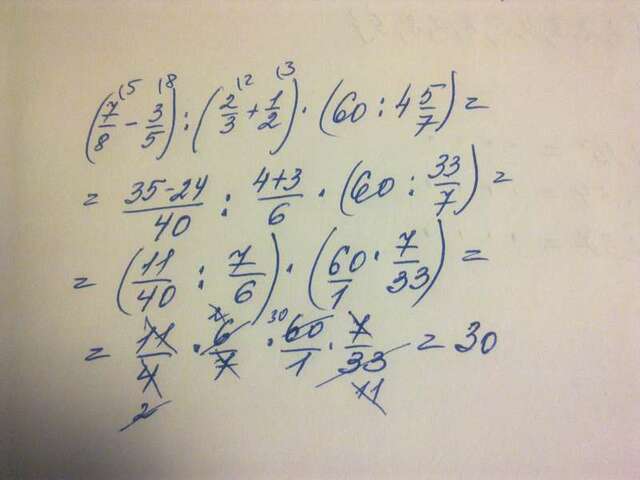 (7/8 − 3/5) : (2/3 + 1/2) · (60 : 4 5/7) =
= (35−24)/40 : (4+3)/6 · (60 : 33/7) =
= (11/40 : 7/6) · (60/1 · 7/33) =
= 11/4 · 6/7 · 60/1 · 7/33 = 30